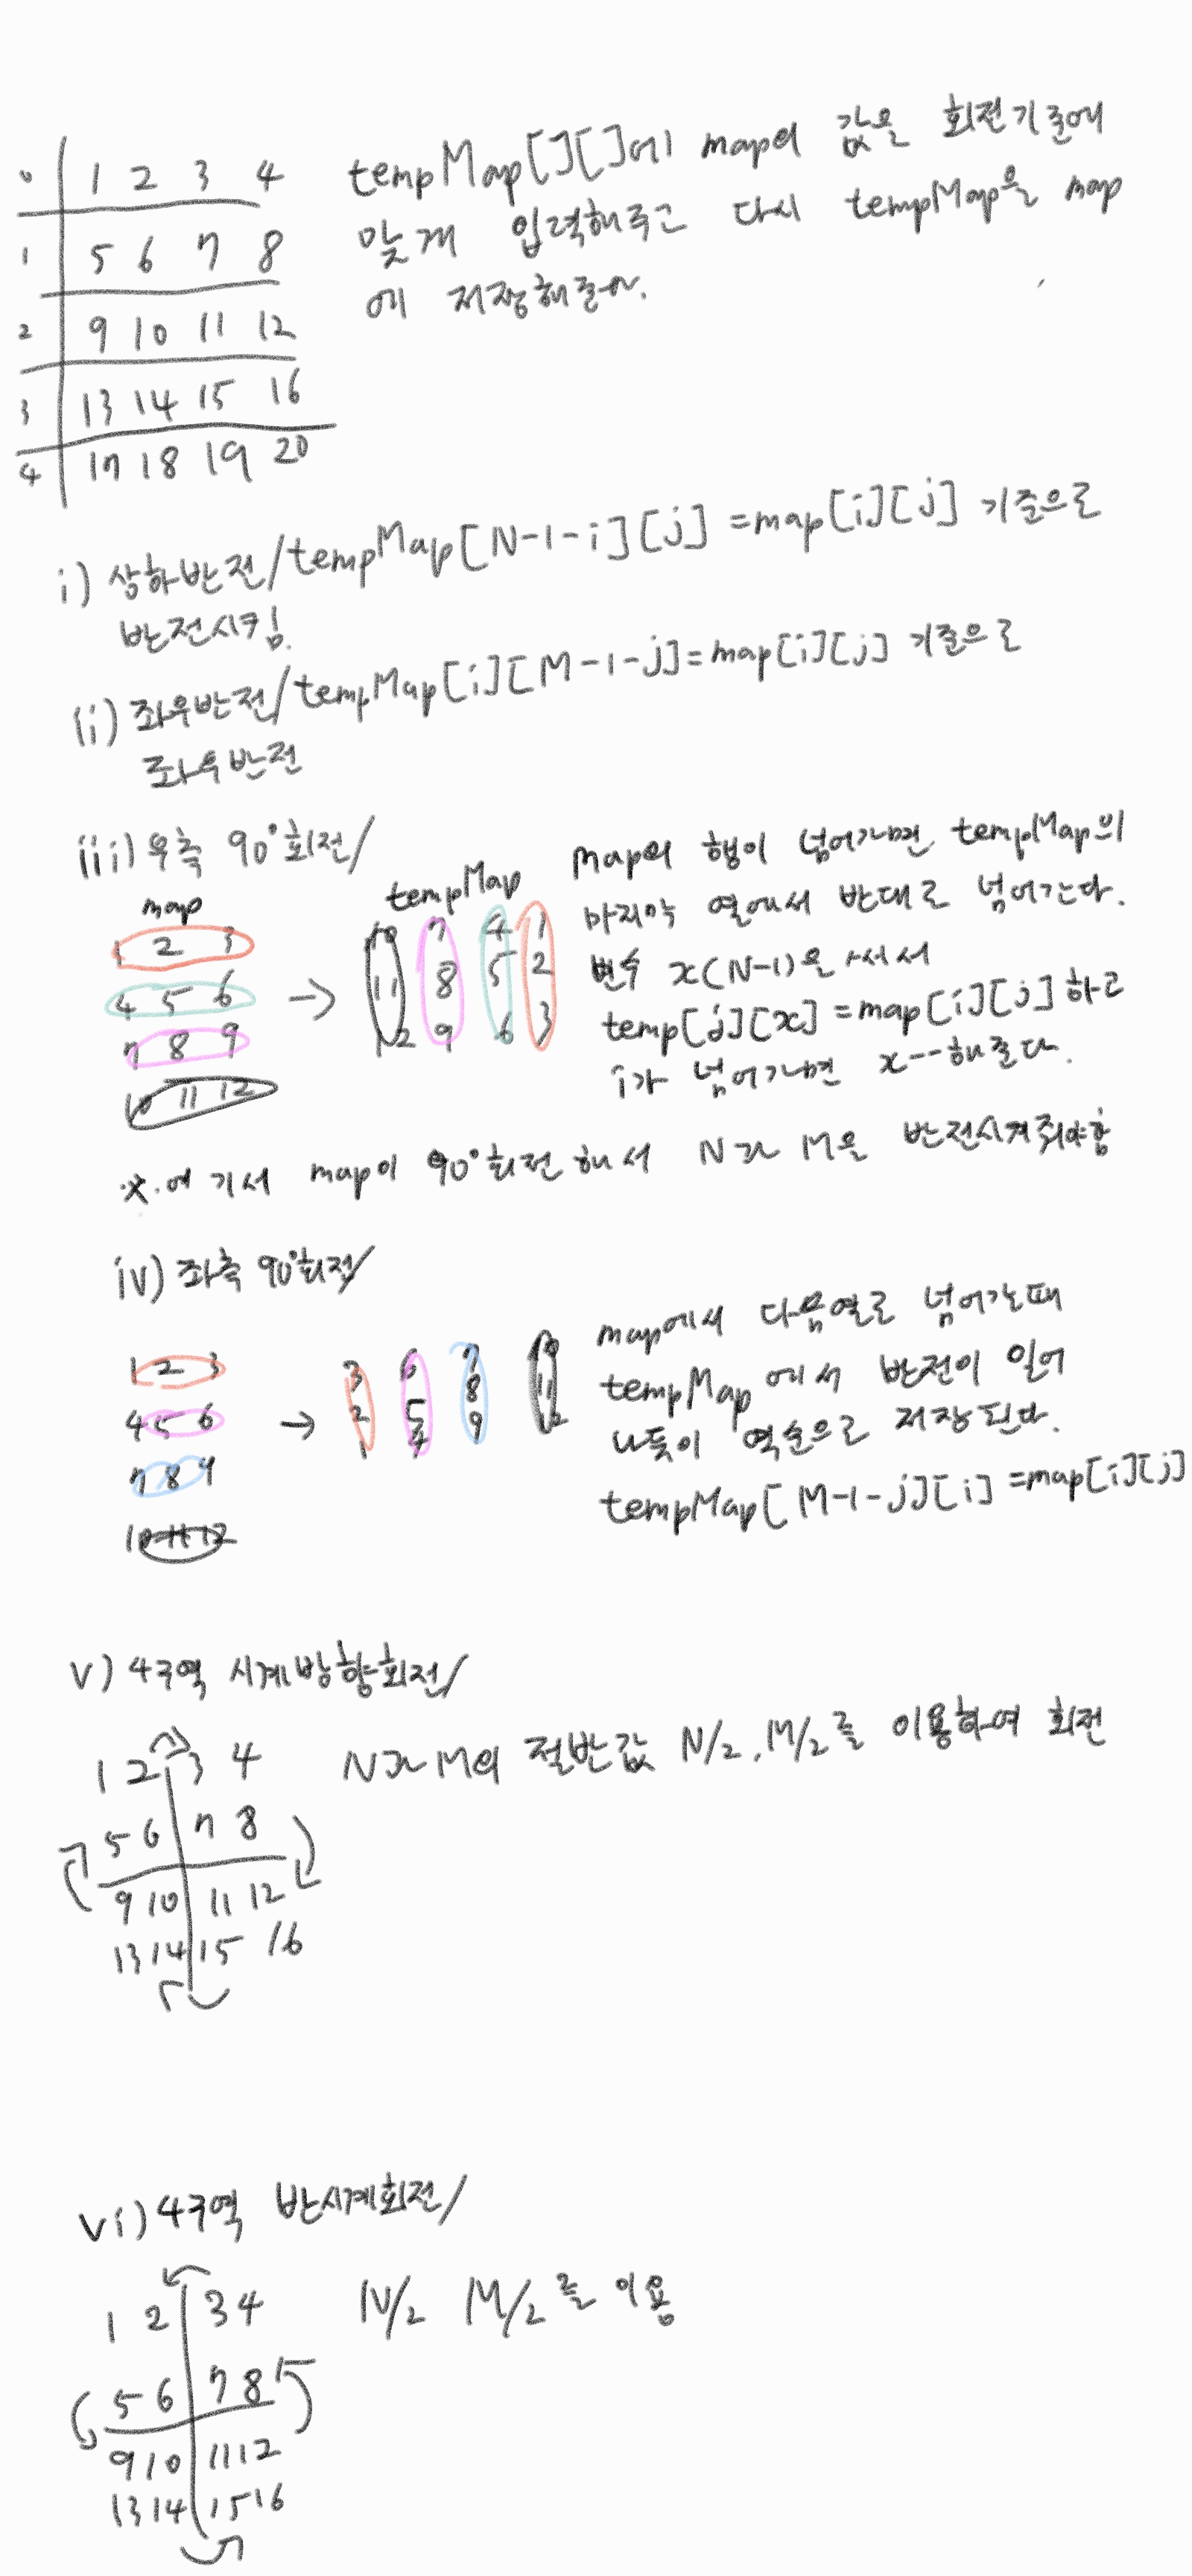 0 1 2 3 4
1 5 6 7 8
2 9 10 11 12
3 13 14 15 16
4 17 18 19 20
tempMap[][]에 map의 값을 회전기준에
맞게 입력해주고 다시 tempMap을 map
에 저장해준다.
i) 상하반전/tempMap[N-1-i][j] =map[i][j] 기준으로
반전시킴.
ii) 좌우반전/tempMap[i][M-1-j]=map[i][j] 기준으로
좌우반전
iii) 우측 90°회전/
map
1 2 3
4 5 6
7 8 9
10 11 12
→
tempMap
10 7 4 1
11 8 5 2
12 9 6 3
map의 행이 넘어가면 tempMap의
마지막 열에서 반대로 넘어간다.
변수 x(N-1)을 써서
temp[j][x] =map[i][j] 하고
i가 넘어가면 x--해준다.
※.여기서 map이 90°회전해서 N과 M을 반전시켜줘야함
iv) 좌측 90°회전/
1 2 3
4 5 6
7 8 9
10 11 12
→
3 6 7 10
2 5 8 11
1 4 9 12
map에서 다음열로 넘어갈때
tempMap에서 반전이 일어
나듯이 역순으로 저장된다.
tempMap[M-1-j][i] =map[i][j]
v) 4구역 시계방향회전/
1 2 3 4
5 6 7 8
9 10 11 12
13 14 15 16
N과 M의 절반값 N/2, M/2를 이용하여 회전
vi) 4구역 반시계회전/
1 2 3 4
5 6 7 8
9 10 11 12
13 14 15 16
N/2 M/2를 이용